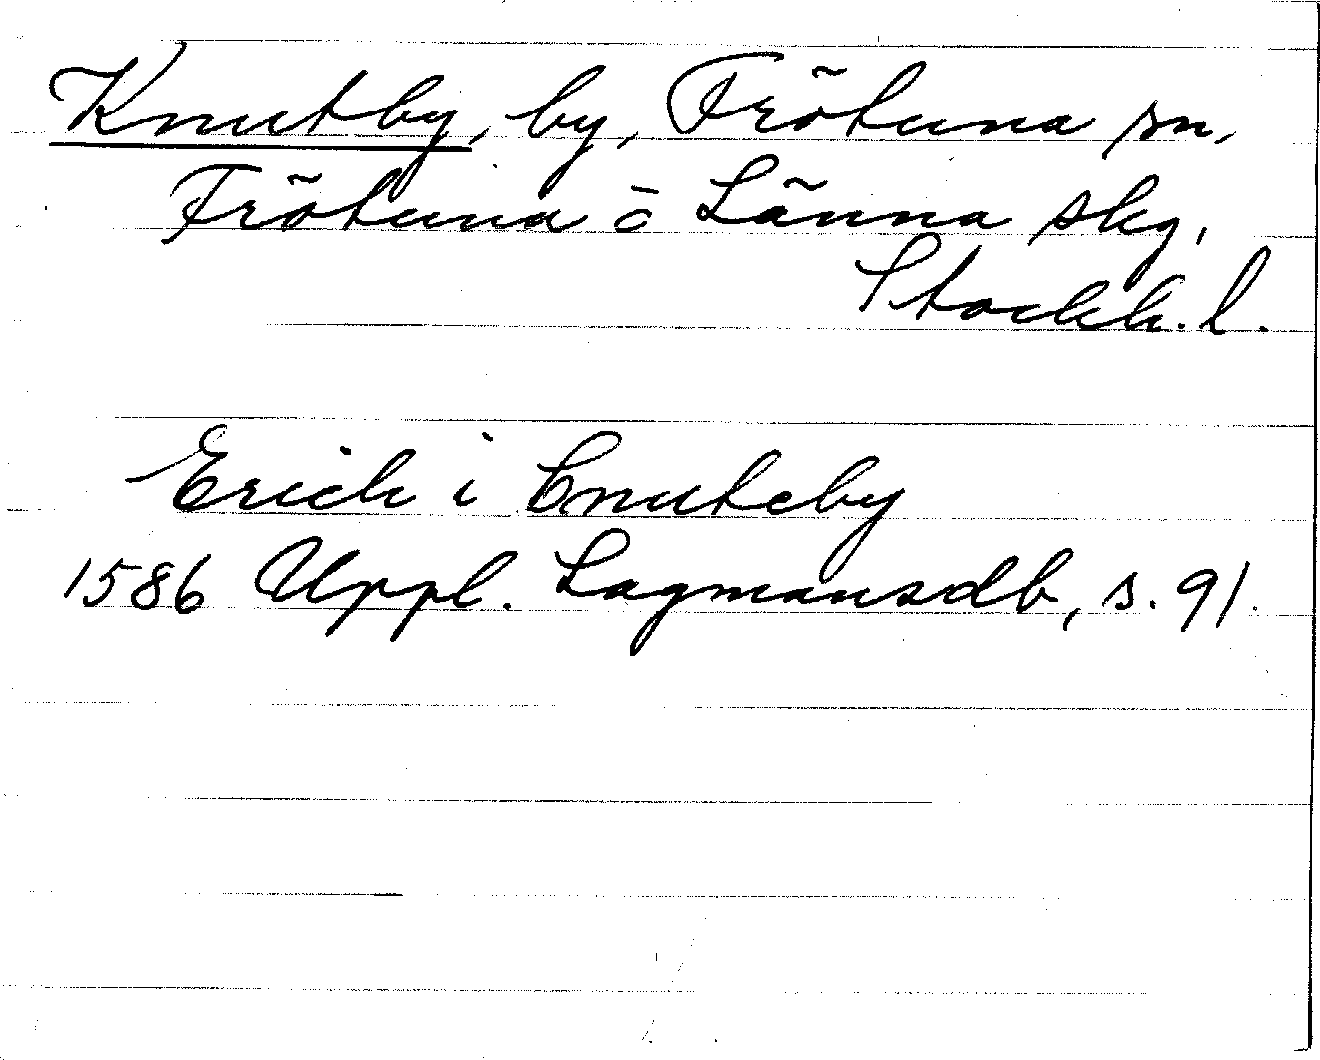 Knutby, by, Frötuna sn,
Frötuna o Länna skg,
Stockh. l.
Erich i Cnuteby
1586 Uppl. Lagmansdb, s. 91.